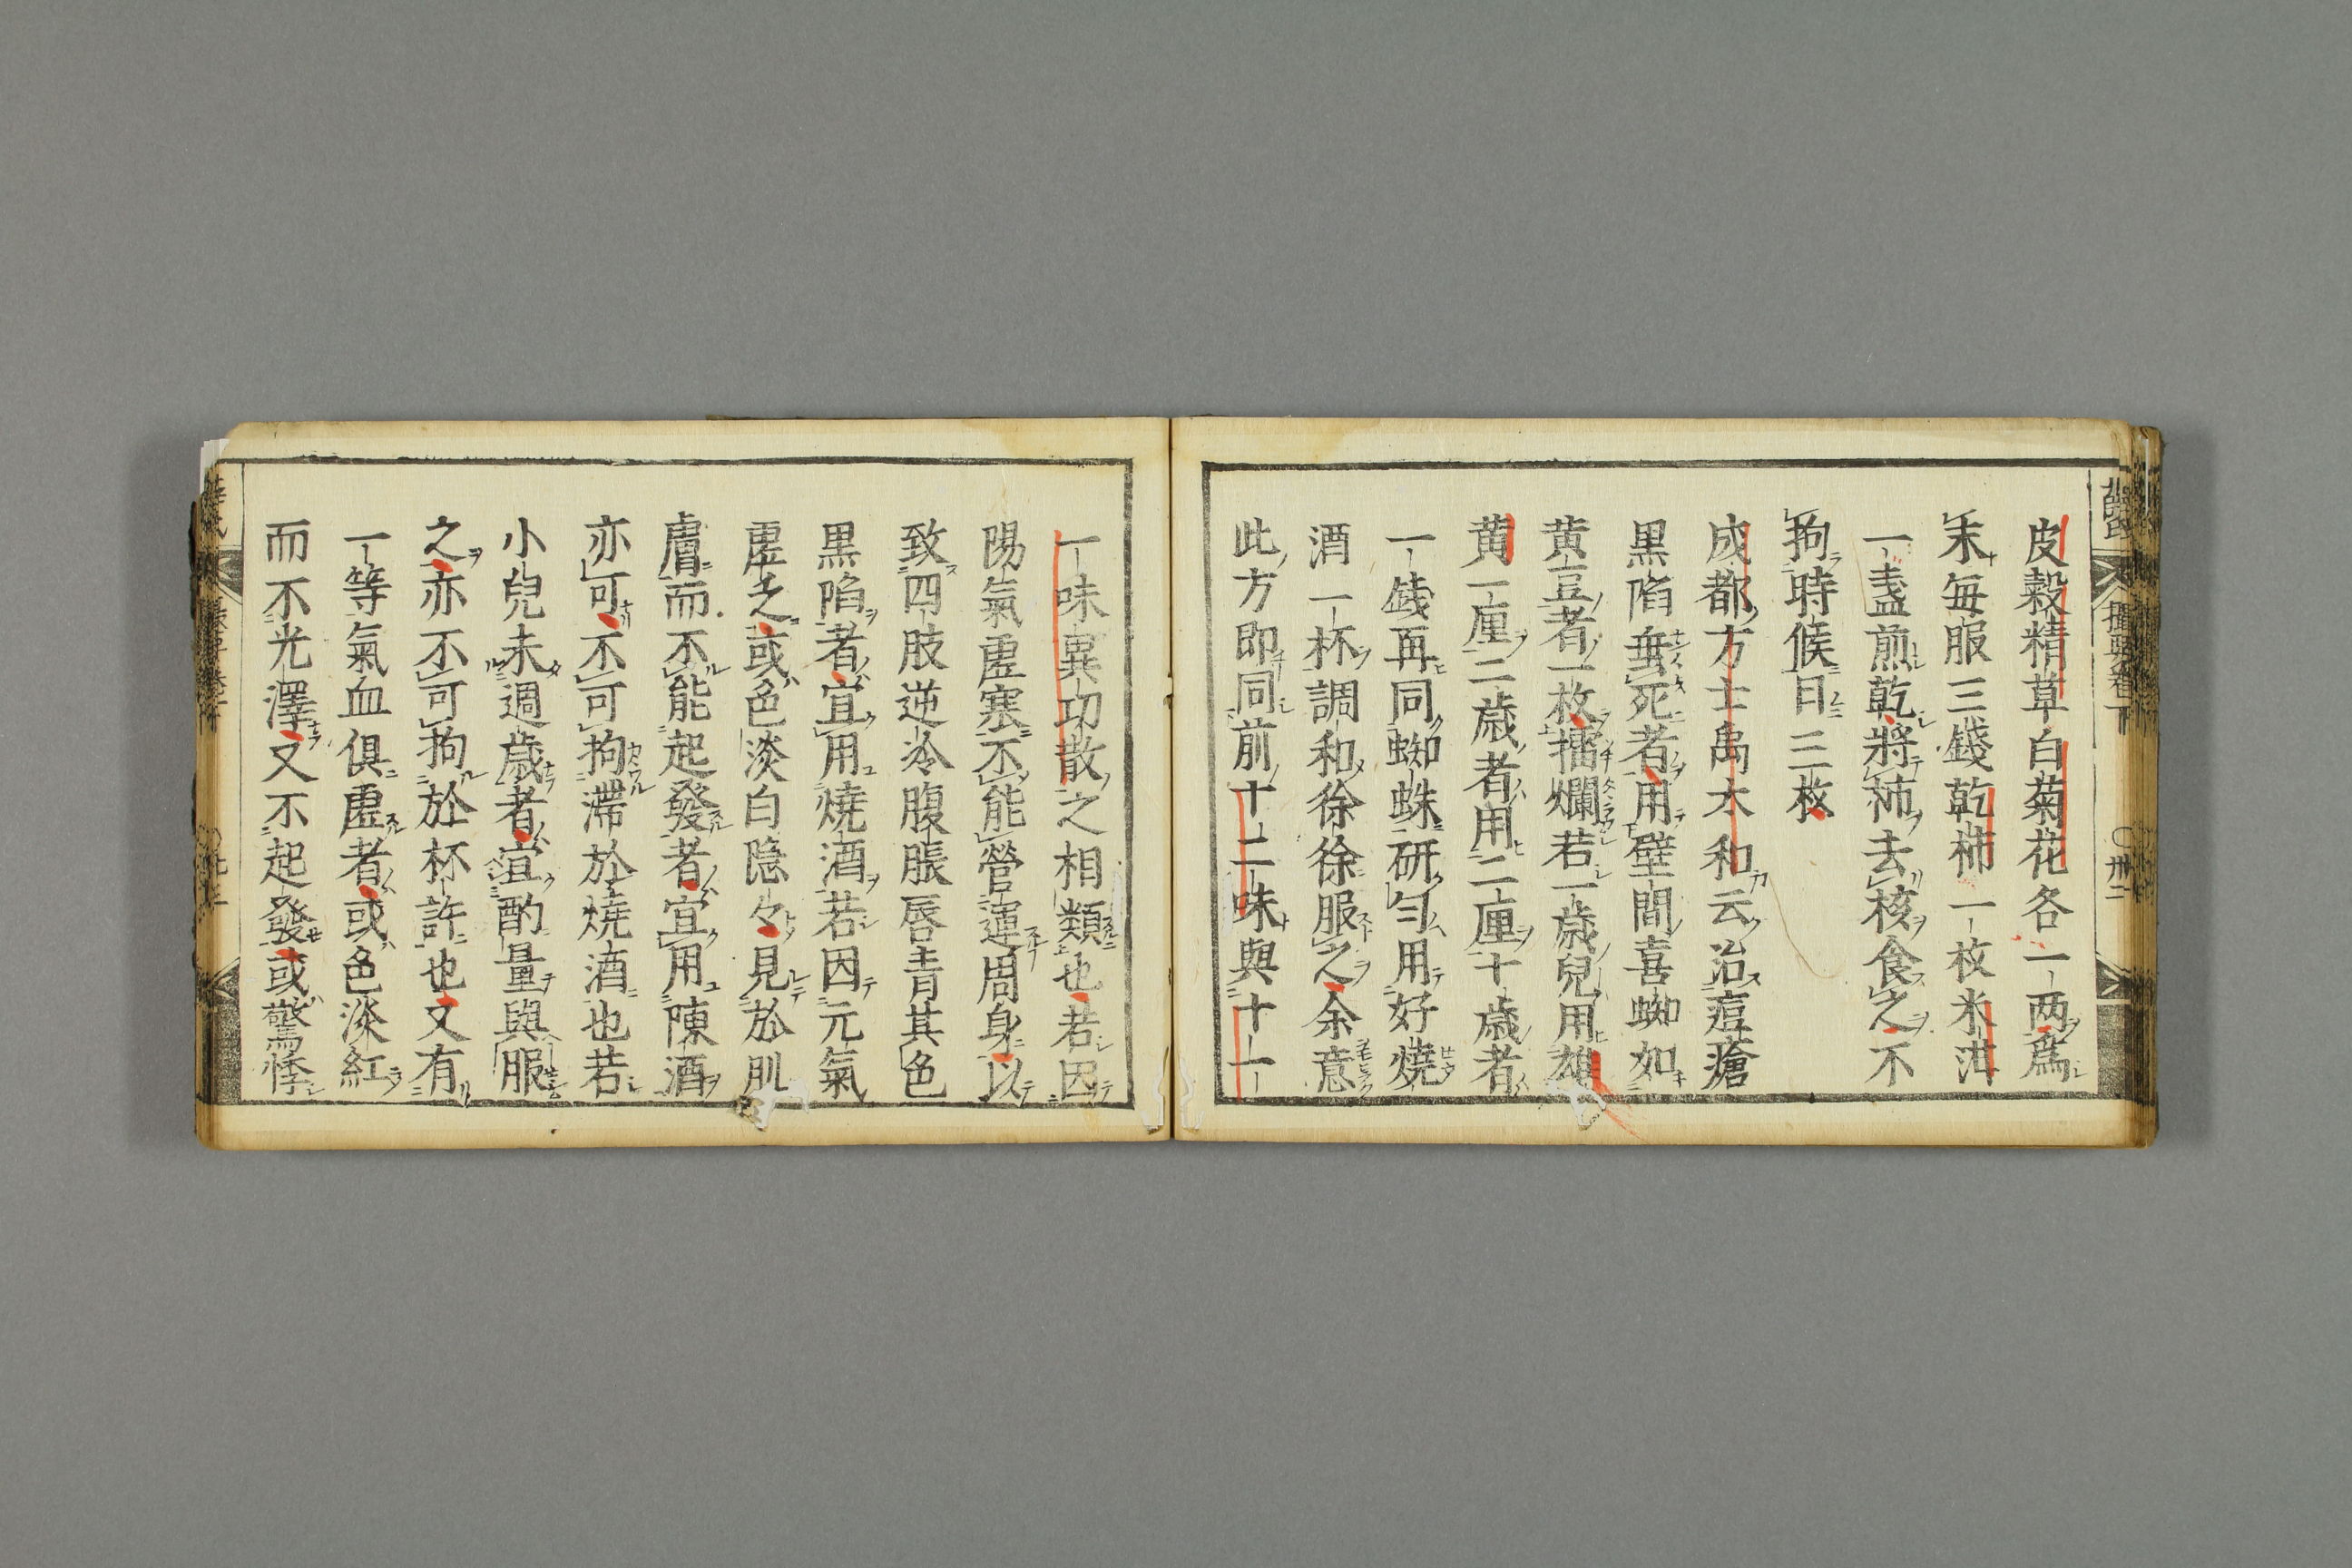 皮穀精草白菊花各一两爲
末每服三錢乾柹一枚米泔
一盞煎乾將柹去核食之不
拘時候日三枚
成都方士禹太和云治痘瘡
黒陷垂死者用壁間喜蜘如
黄豆者一枚擂爛若一歳兒用雄
黄一厘二歳者用二厘十歳者
一錢再同蜘蛛研勻用好燒
酒一杯調和徐徐服之余意
此方即同前十二味與十一
一味異功散之相類也若因
陽氣虚寒不能營運周身以
致四肢逆冷腹脹唇青其色
黒陷者宜用燒酒若因元氣
虚乏或色淡白隐々見於肌
膚而不能起發者宜用陳酒
亦可不可拘滯於燒酒也若
小兒未週歳者宜酌量與服
之亦不可拘於杯許也又有
一等氣血俱虚者或色淡紅
而不光澤又不起發或驚悸